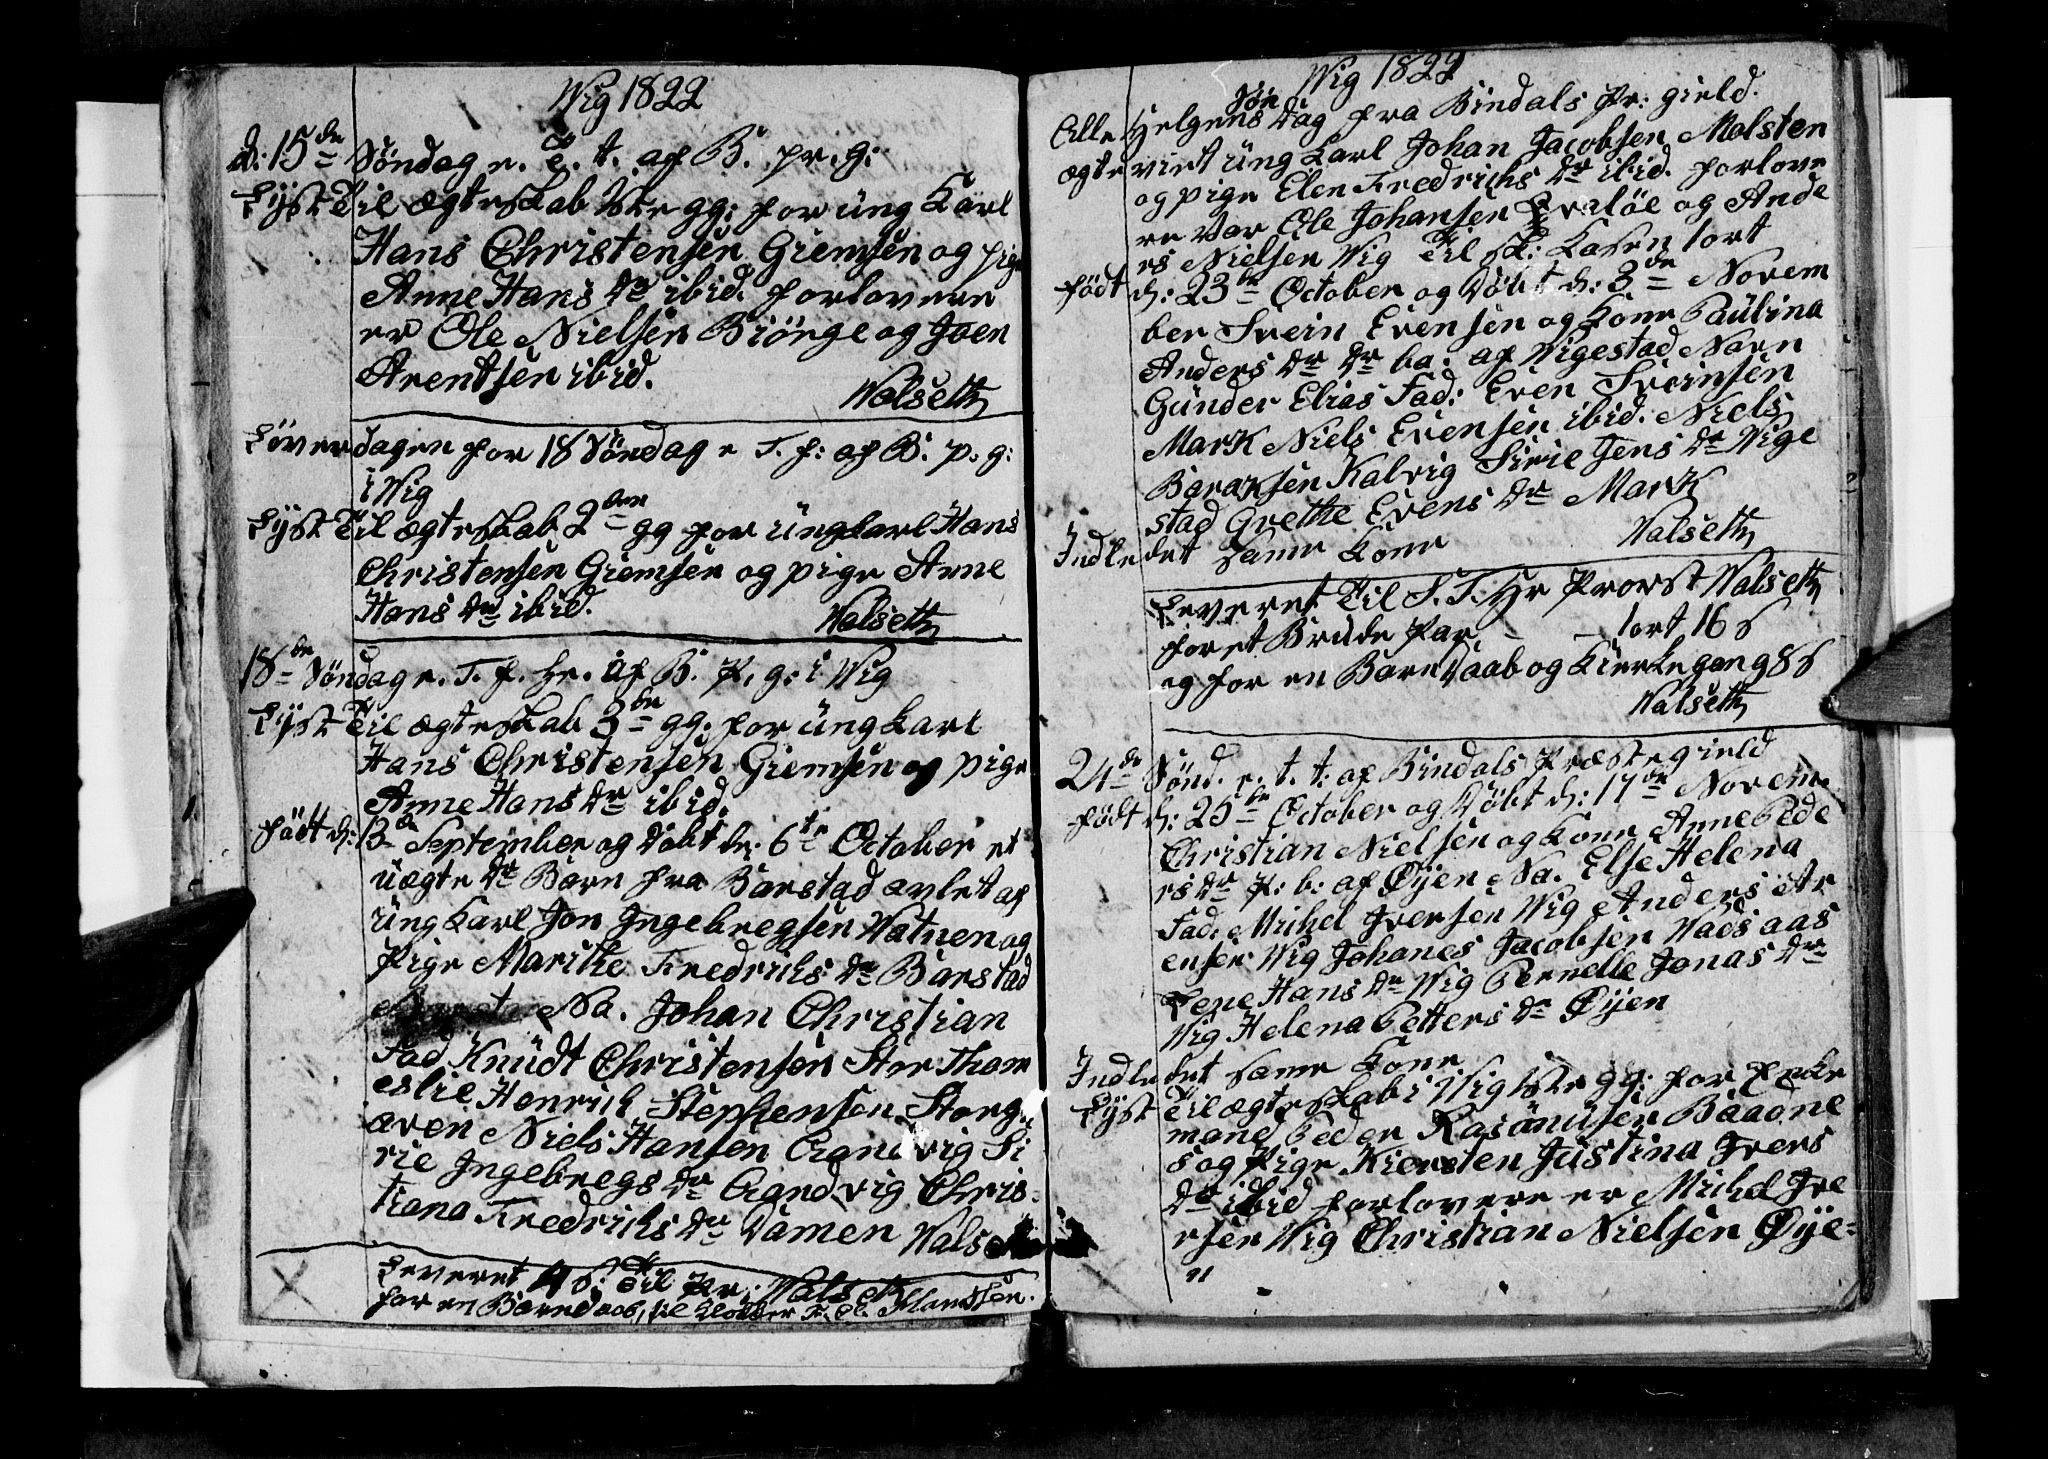 Wig 1822
d: 15de Söndag e. T. t. af B. pr. g:
Lÿst Til ægteskab 1ste gg: for üng Karl
Hans Christensen Giemsen og pige
Anne Hans Dr ibid. forlovere
er Ole Nielsen Biörge og Joen
Arentsen ibid.
Walseth
Löverdagen for 18 Söndag e T. f: af B. p. g:
i Wig
Lÿst Til ægteskab 2den gg for üngkarl Hans
Christensen Giemsen og pige Anne
Hans Dr ibid.
Walseth
18de Söndag e. T. f. Hr. af B. P. g: i Wig
Lÿst Til ægteskab 3de gg: for üng karl
Hans Christensen Giemsen og pige
Anne Hans Dr ibid.
födt d: 13de September og döbt d: 6te October et
üægte Dr Barn fra Barstad avlet af
üng Karl Jon Ingebregsen Watnen og
Pige Marithe Fredrichs Dr Barstad
Na. Johan Christian
Fad Knüdt Christensen Thom
eslie Henrich Stephensen Storg
æven Niels Hansen Aandvig Si
rie Ingebregs Dr Aandvig Chris-
tiana Fredrichs Dr Damen Walseth
Leveret 4 s; Til Pr: Walseth
for en Barnedaab, til Klokker Fr. Cl. Hanssen.
Wig 1822
Alle Helgens Sön Dag fra Bindals Pr: gield.
ægteviet üng karl Johan Jacobsen Malsten
og pige Elen Fredrichs Dr ibid. forlove
re var Ole Johansen og Ande
rs Nielsen Wig Til Sk: Kasen 1ort
födt d: 23de October og Döbt d: 3de Novem
ber Svein Evensen og Kone Paulina
Anders Dr Dr ba: af Wigestad Navn
Günder Elias Fad: Even Sveinsen
Mark Niels Evensen ibid. Niels
Baraksen Kalvig Sirie Jens Dr Wige
stad Grethe Evens Dr Mark
Indledet Samme Kone Walseth
Leveret Til S. T. Hr Provst Walseth
for et Brude Par - - 1ort 16 s
og for en Barn Daab og Kierkegang 8 s
Walseth
24de Sönd. e. t. t: af Bindals Præstegield
födt d: 25de October og Döbt d: 17de Novem.
Christian Nielsen og Kone Anne Pede
rs Dr P: b: af Øÿen Na. Else Helena
Fad. Michel Iversen Wig Anders Ar
ensen Wig Johanes Jacobsen Wadsaas
Lene Hans Dr Wig Pernelle Jonas Dr
Wig Helena Petters Dr Øÿen
Indledet Samme Kone
Lÿst Til ægteskab i Wig 1ste gg: for Enke
mand Peder Rasmusen Baadne
s og Pige Kiersten Justina Ivers
Dr ibid forlovere er Michel Ive
rsen Wig Christian Nielsen Øÿe-
n